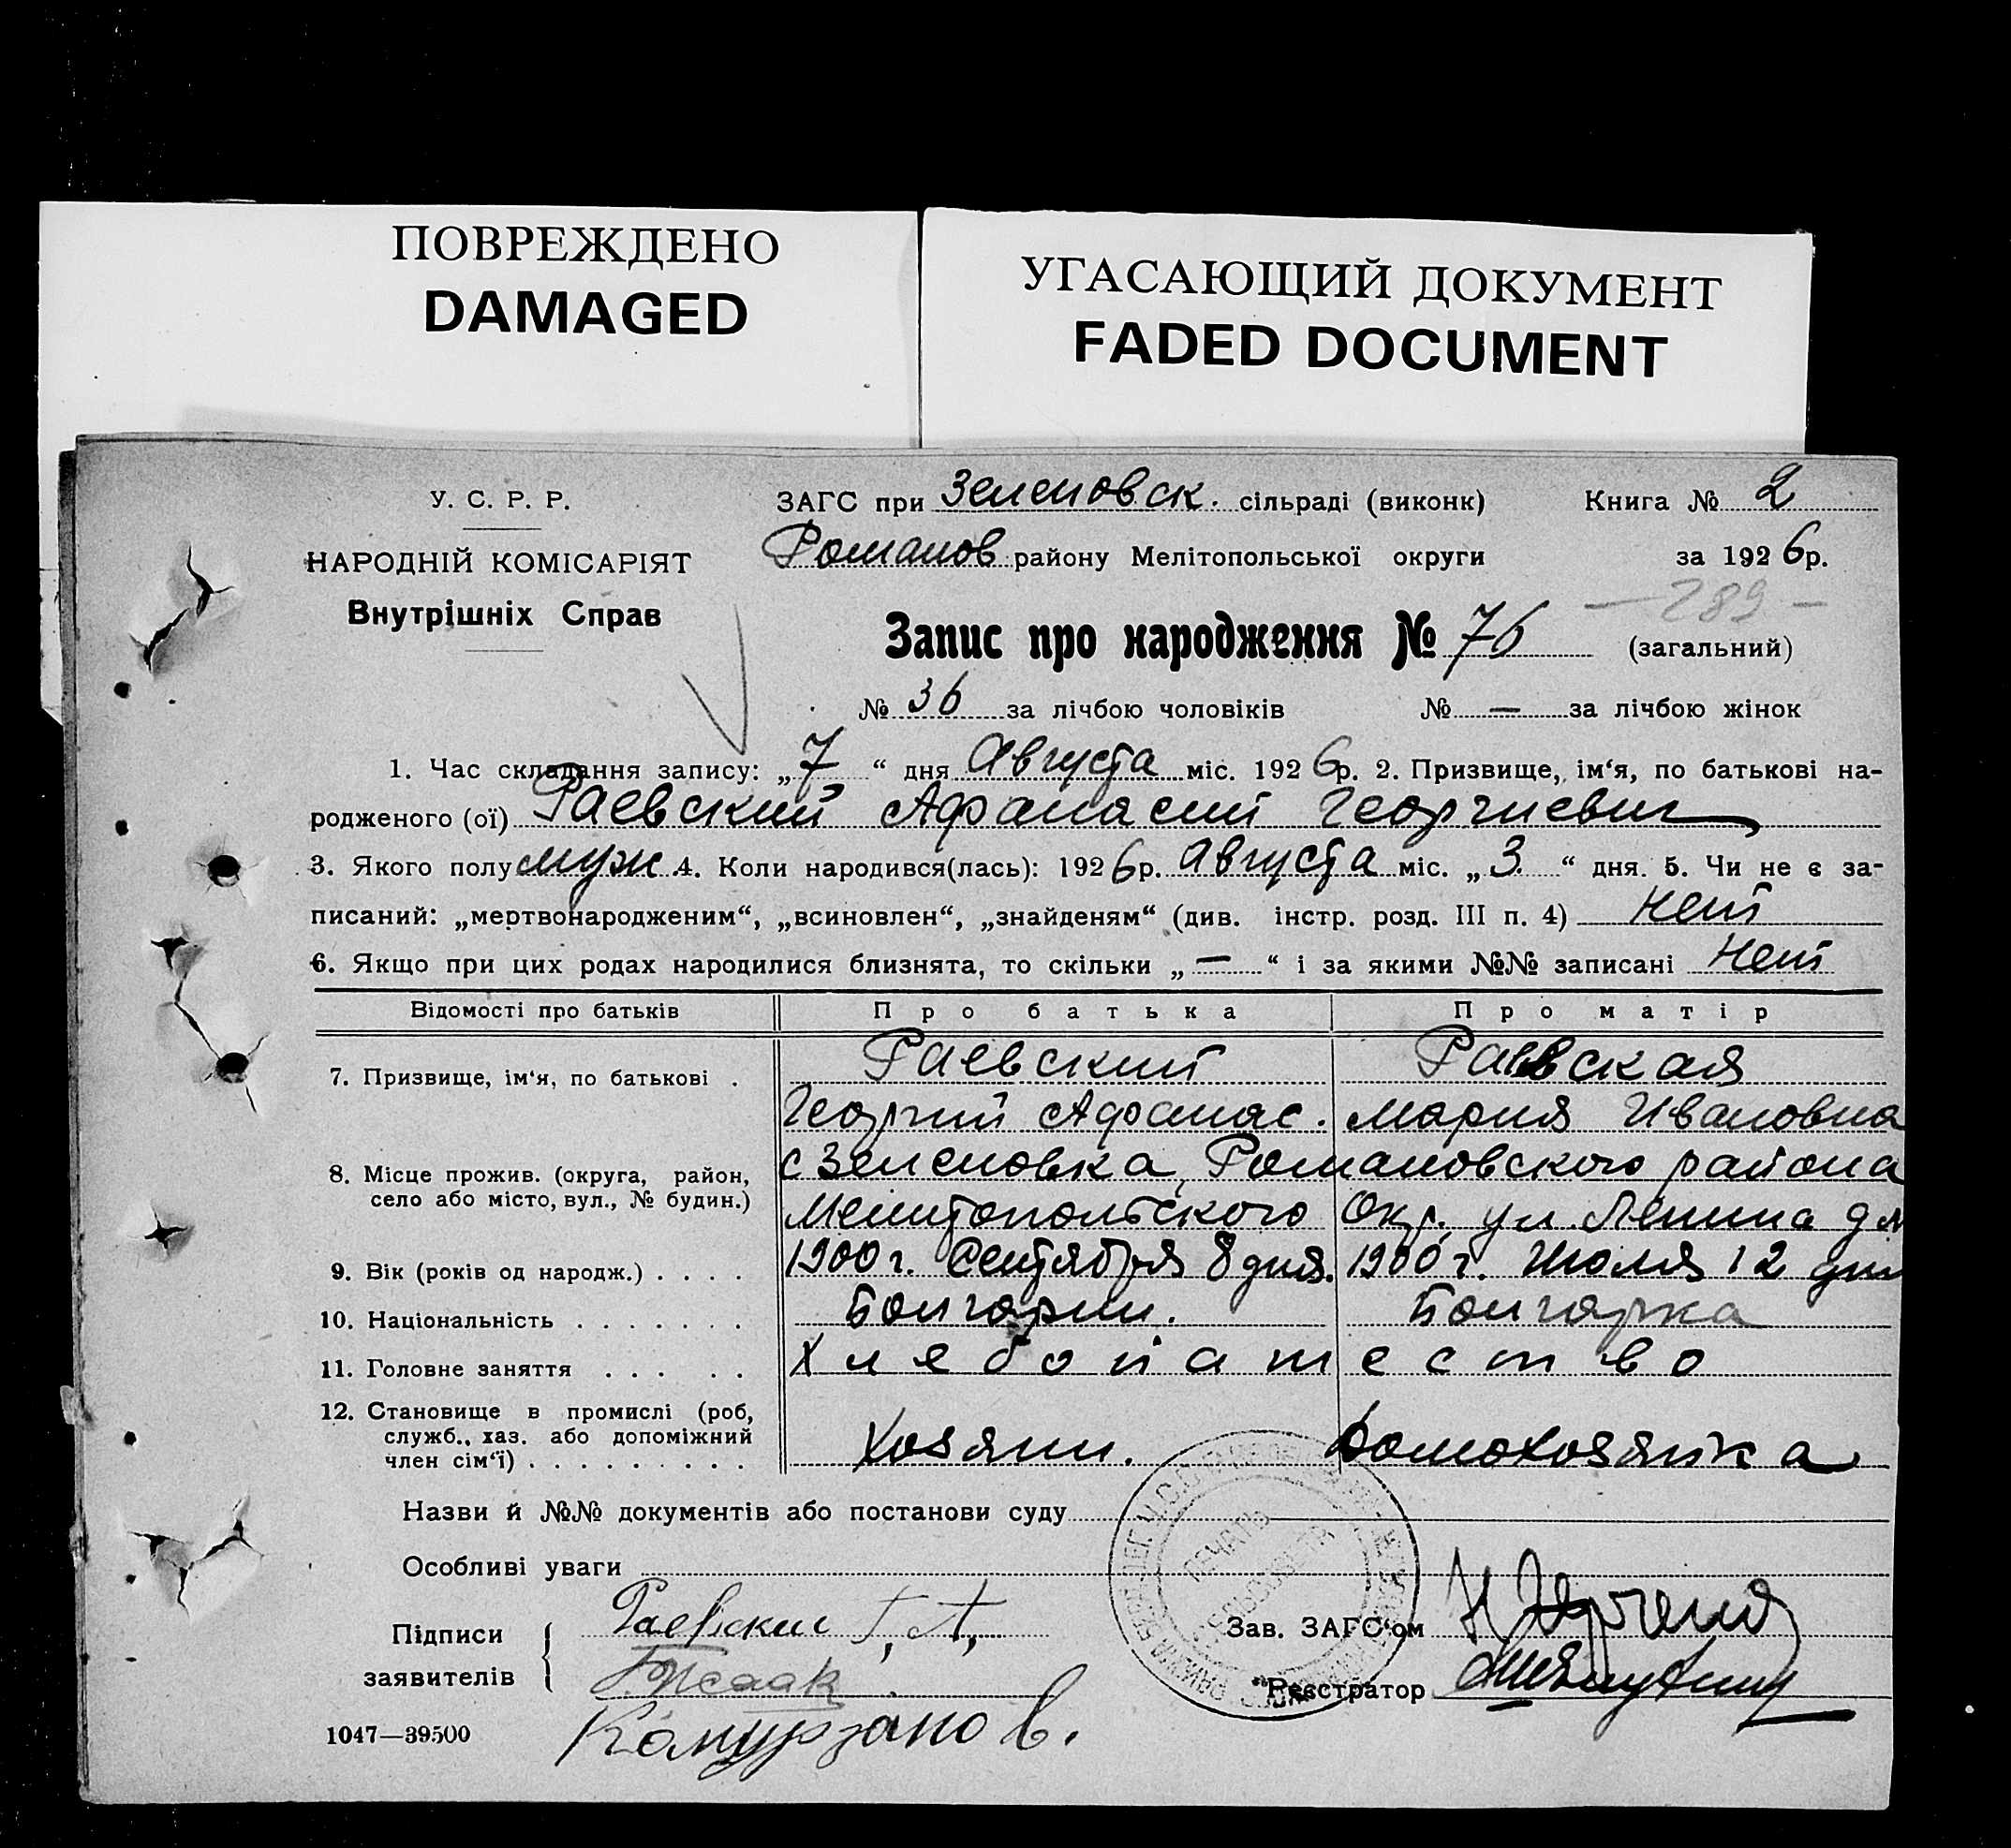 ПОВРЕЖДЕНО
DAMAGED
УГАСАЮЩИЙ ДОКУМЕНТ
FADED DOCUMENT
У. С. Р. Р.
НАРОДНІЙ КОМІСАРІЯТ
Внутрішніх Справ
ЗАГС при Зеленовск. сільраді (виконк) Книга № 2
Романов району Мелітопольської округи за 1926р.
— 289 —
Запис про народження № 76 (загальний)
№ 36 за лічбою чоловіків № — за лічбою жінок
1. Час складання запису: „7“ дня Августа міс. 1926р. 2. Призвище, ім‘я, по батькові на-
родженого (ої) Раевский Афанасий Георгиевич
3. Якого полу муж 4. Коли народився(лась): 1926р. Августа міс. „3“ дня. 5. Чи не є за-
писаний: „мертвонародженим“, „всиновлен“, „знайденям“ (див. інстр. розд. III п. 4) Нет
6. Якщо при цих родах народилися близнята, то скільки „—“ і за якими №№ записані Нет
Відомості про батьків Про батька Про матір
7. Призвище, ім‘я, по батькові . Раевский Раевская
Георгий Афанас. Мария Ивановна
8. Місце прожив. (округа, район, с Зеленовка, Романовского района
село або місто, вул., № будин.) Мелитопольского Окр. ул. Ленина
9. Вік (років од народж.) . . . . 1900 г. Сентября 8 дня. 1900 г. Июля 12 дня
10. Національність . . . . . . . Болгарин. Болгарка
11. Головне заняття . . . . . Хлебопашество
12. Становище в промислі (роб,
служб., хаз. або допоміжний Хозяин. Домохозяйка
член сім‘ї) . . . . . . . . .
Назви й №№ документів або постанови суду
Особливі уваги
ПЕЧАТЬ
СЕЛЬСОВЕТА
Підписи Раевский Г. А.
заявителів
Зав. ЗАГС‘ом
Реєстратор
1047—39500